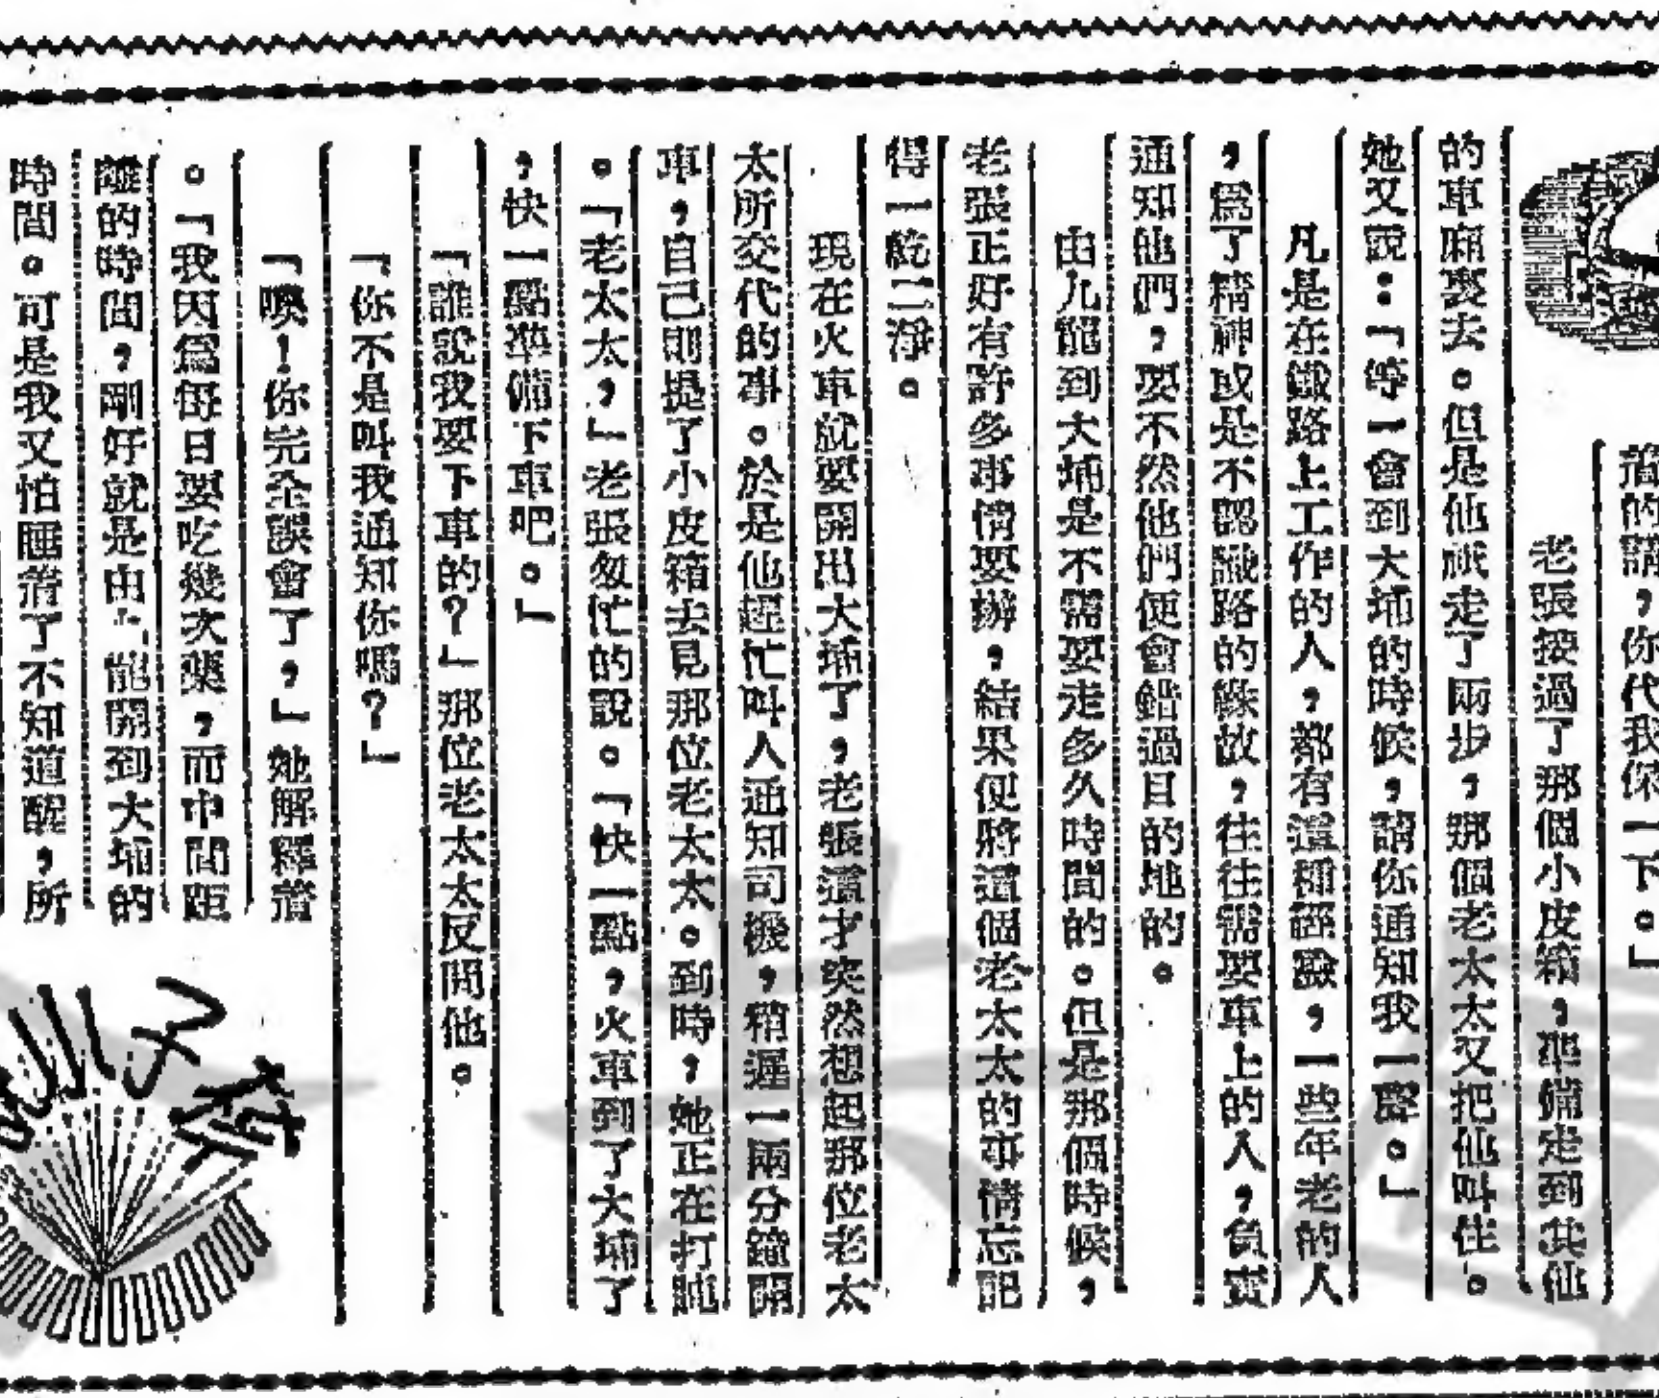 着的講，你代我保一下。」
老張接過了那個小皮箱，準備走到其他
的車廂裏去。但是他祇走了兩步，那個老太太又把他叫住。
她又說：「等一會到大埔的時候，請你通知我一聲。」
凡是在鐵路上工作的人，都有這種經驗，一些年老的人
，爲了精神或是不認識路的緣故，往往需要車上的人，負責
通知他們，要不然他們便會錯過目的地的。
由九龍到大埔是不需要走多久時間的。但是那個時候，
老張正好有許多事情要辦，結果便將這個老太太的事情忘記
得一乾二淨。
現在火車就要開出大埔了，老張這才突然想起那位老太
太所交代的事。於是他趕忙叫人通知司機，稍遲一兩分鐘開
車，自己則提了小皮箱去見那位老太太。到時，她正在打盹
。「老太太，」老張匆忙的說。「快一點，火車到了大埔了
，快一點準備下車吧。」
「誰說我要下車的？」那位老太太反問他。
「你不是叫我通知你嗎？」
「噢！你完全誤會了，」她解釋着
。「我因爲每日要吃幾次藥，而中間距
離的時間，剛好就是由九龍開到大埔的
時間。可是我又怕睡着了不知道醒，所